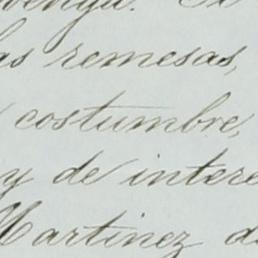 as remesas,
costumbre,
y de intere
Martinez d